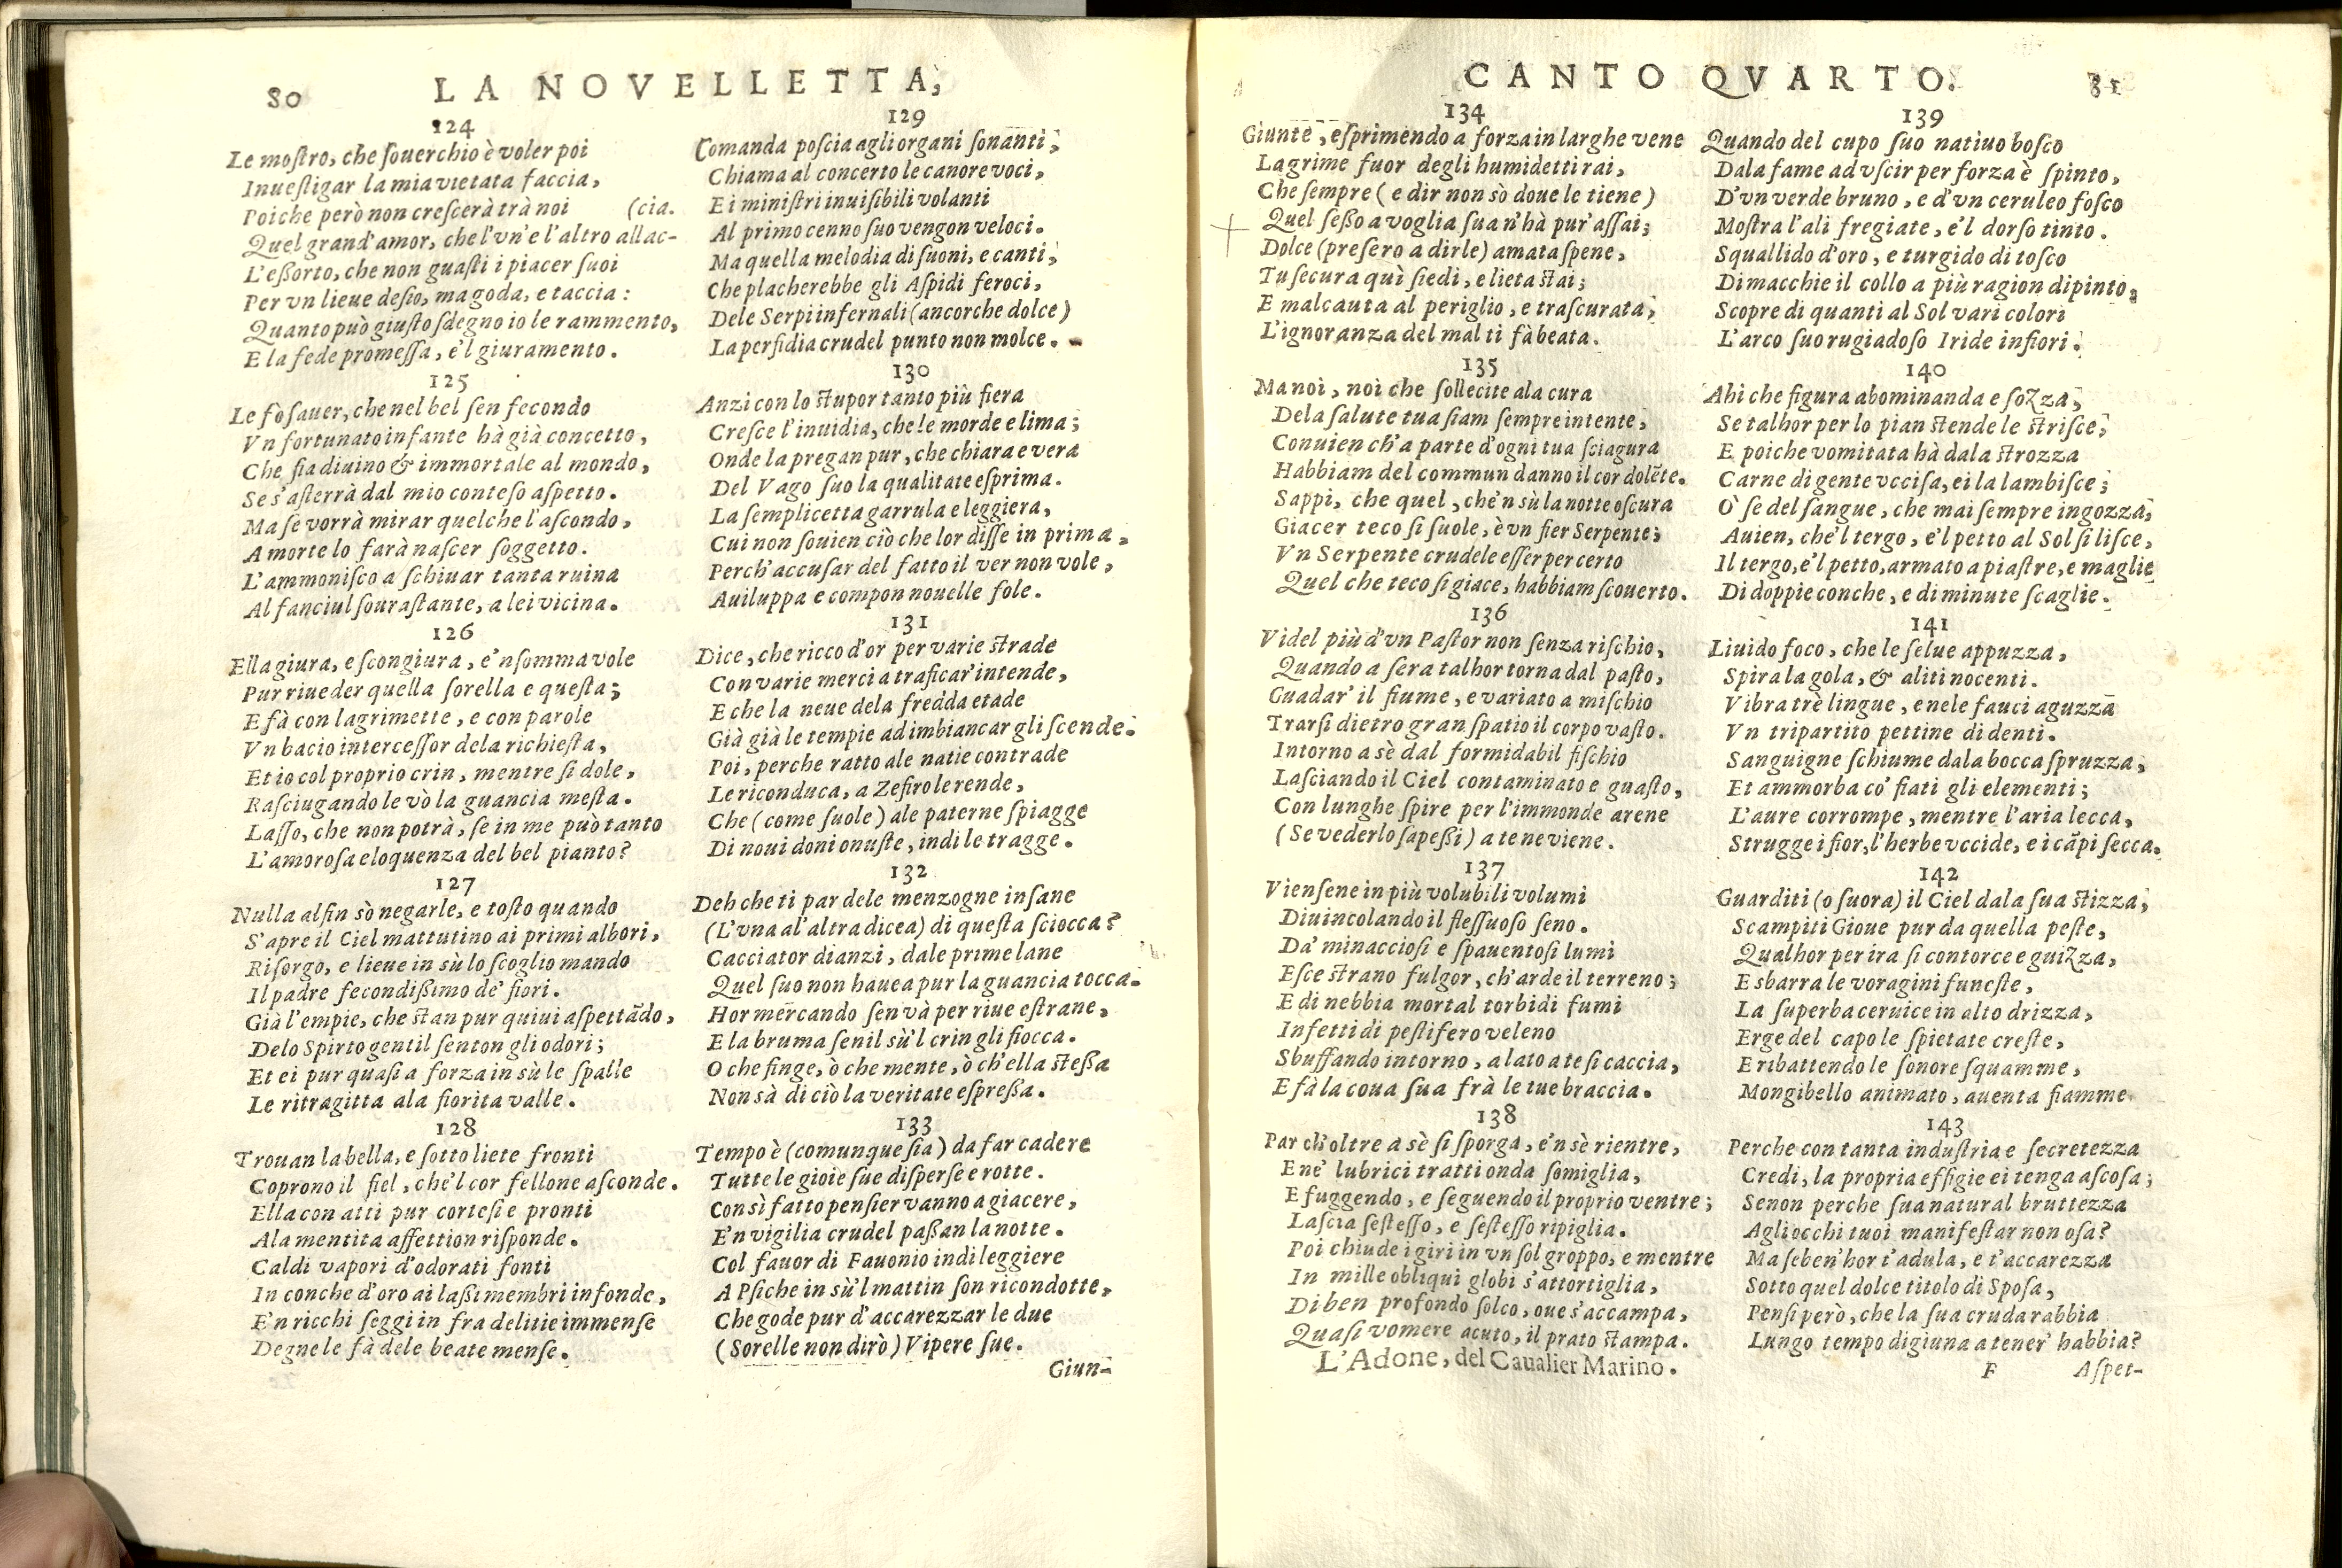 80 LA NOVELLETTA,
124
Le moſtro, che ſouerchio è voler poi
Inueſtigar la mia vietata faccia,
Poiche però non creſcerà trà noi (cia.
Quel grand'amor, che l'vn'e l'altro allac-
L'eßorto, che non guaſti i piacer ſuoi
Per vn lieue deſio, ma goda, e taccia:
Quanto può giuſto ſdegno io le rammento,
E la fede promeſſa, e'l giuramento.
125
Le fò ſauer, che nel bel ſen fecondo
Vn fortunato infante hà già concetto,
Che ſia diuino & immortale al mondo,
Se s'aſterrà dal mio conteſo aſpetto.
Ma ſe vorrà mirar quel che l'aſcondo,
A morte lo farà naſcer ſoggetto.
L'ammoniſco a ſchiuar tanta ruina
Al fanciul ſouraſtante, a lei vicina.
126
Ella giura, e ſcongiura, e'nſomma vole
Pur riueder quella ſorella e queſta;
E fà con lagrimette, e con parole
Vn bacio interceſſor dela richieſta,
Et io col proprio crin, mentre ſi dole,
Raſciugando le vò la guancia meſta.
Laſſo, che non potrà, ſe in me può tanto
L'amoroſa eloquenza del bel pianto?
127
Nulla alfin sò negarle, e toſto quando
S'apre il Ciel mattutino ai primi albori,
Riſorgo, e lieue in sù lo ſcoglio mando
Il padre fecondißimo de' fiori.
Già l'empie, che ſtan pur quiui aſpettãdo,
Delo Spirto gentil ſenton gli odori;
Et ei pur quaſi a forza in sù le ſpalle
Le ritragitta ala fiorita valle.
128
Trouan la bella, e ſotto liete fronti
Coprono il fiel, che'l cor fellone aſconde.
Ella con atti pur corteſi e pronti
Ala mentita affettion riſponde.
Caldi vapori d'odorati fonti
In conche d'oro ai laßi membri infonde,
E'n ricchi ſeggi in fra delitie immenſe
Degne le fà dele beate menſe.
129
Comanda poſcia agli organi ſonanti,
Chiama al concerto le canore voci,
E i miniſtri inuiſibili volanti
Al primo cenno ſuo vengon veloci.
Ma quella melodia di ſuoni, e canti,
Che placherebbe gli Aſpidi feroci,
Dele Serpi infernali (ancorche dolce)
La perfidia crudel punto non molce.
130
Anzi con lo ſtupor tanto più fiera
Creſce l'inuidia, che le morde e lima;
Onde la pregan pur, che chiara e vera
Del Vago ſuo la qualitate eſprima.
La ſemplicetta garrula e leggiera,
Cui non ſouien ciò che lor diſſe in prima,
Perch'accuſar del fatto il ver non vole,
Auiluppa e compon nouelle fole.
131
Dice, che ricco d'or per varie ſtrade
Con varie merci a traficar'intende,
E che la neue dela fredda etade
Già già le tempie ad imbiancar gli ſcende.
Poi, perche ratto ale natie contrade
Le riconduca, a Zefiro le rende,
Che (come ſuole) ale paterne ſpiagge
Di noui doni onuſte, indi le tragge.
132
Deh che ti par dele menzogne inſane
(L'vna al'altra dicea) di queſta ſciocca?
Cacciator dianzi, dale prime lane
Quel ſuo non hauea pur la guancia tocca.
Hor mercando ſen và per riue eſtrane,
E la bruma ſenil sù'l crin gli fiocca.
O che finge, ò che mente, ò ch'ella ſteßa
Non sà di ciò la veritate eſpreßa.
133
Tempo è (comunque ſia) da far cadere
Tutte le gioie ſue diſperſe e rotte.
Con sì fatto penſier vanno a giacere,
E'n vigilia crudel paßan la notte.
Col fauor di Fauonio indi leggiere
A Pſiche in sù'l mattin ſon ricondotte,
Che gode pur d'accarezzar le due
(Sorelle non dirò) Vipere ſue.
Giun-
CANTO QVARTO. 81
134
Giunte, eſprimendo a forza in larghe vene
Lagrime fuor degli humidetti rai,
Che ſempre (e dir non sò doue le tiene)
Quel ſeßo a voglia ſua n'hà pur'aſſai;
Dolce (preſero a dirle) amata ſpene,
Tu ſecura quì ſiedi, e lieta ſtai;
E malcauta al periglio, e traſcurata,
L'ignoranza del mal ti fà beata.
135
Ma noi, noi che ſollecite ala cura
Dela ſalute tua ſiam ſempre intente,
Conuien ch'a parte d'ogni tua ſciagura
Habbiam del commun danno il cor dolẽte.
Sappi, che quel, che'n sù la notte oſcura
Giacer teco ſi ſuole, è vn fier Serpente;
Vn Serpente crudele eſſer per certo
Quel che teco ſi giace, habbiam ſcouerto.
136
Videl più d'vn Paſtor non ſenza riſchio,
Quando a ſera talhor torna dal paſto,
Guadar' il fiume, e variato a miſchio
Trarſi dietro gran ſpatio il corpo vaſto.
Intorno a sè dal formidabil fiſchio
Laſciando il Ciel contaminato e guaſto,
Con lunghe ſpire per l'immonde arene
(Se vederlo ſapeßi) a te ne viene.
137
Vienſene in più volubili volumi
Diuincolando il fleſſuoſo ſeno.
Da' minaccioſi e ſpauentoſi lumi
Eſce ſtrano fulgor, ch'arde il terreno;
E di nebbia mortal torbidi fumi
Infetti di peſtifero veleno
Sbuffando intorno, a lato a te ſi caccia,
E fà la coua ſua frà le tue braccia.
138
Par ch'oltre a sè ſi ſporga, e'n sè rientre,
E ne' lubrici tratti onda ſomiglia,
E fuggendo, e ſeguendo il proprio ventre;
Laſcia ſeſteſſo, e ſeſteſſo ripiglia.
Poi chiude i giri in vn ſol groppo, e mentre
In mille obliqui globi s'attortiglia,
Di ben profondo ſolco, oue s'accampa,
Quaſi vomere acuto, il prato ſtampa.
L'Adone, del Caualier Marino.
139
Quando del cupo ſuo natiuo boſco
Dala fame ad vſcir per forza è ſpinto,
D'vn verde bruno, e d'vn ceruleo foſco
Moſtra l'ali fregiate, e'l dorſo tinto.
Squallido d'oro, e turgido di toſco
Di macchie il collo a più ragion dipinto,
Scopre di quanti al Sol vari colori
L'arco ſuo rugiadoſo Iride infiori.
140
Ahi che figura abominanda e ſozza,
Se talhor per lo pian ſtende le ſtriſce,
E poiche vomitata hà dala ſtrozza
Carne di gente vcciſa, ei la lambiſce;
O' ſe del ſangue, che mai ſempre ingozza,
Auien, che'l tergo, e'l petto al Sol ſi liſce,
Il tergo, e'l petto, armato a piaſtre, e maglie
Di doppie conche, e di minute ſcaglie.
141
Liuido foco, che le ſelue appuzza,
Spira la gola, & aliti nocenti.
Vibra trè lingue, e nele fauci aguzza
Vn tripartito pettine di denti.
Sanguigne ſchiume dala bocca ſpruzza,
Et ammorba co' fiati gli elementi;
L'aure corrompe, mentre l'aria lecca,
Strugge i fior, l'herbe vccide, e i cãpi ſecca.
142
Guarditi (o ſuora) il Ciel dala ſua ſtizza,
Scampiti Gioue pur da quella peſte,
Qualhor per ira ſi contorce e guizza,
E sbarra le voragini funeſte,
La ſuperba ceruice in alto drizza,
Erge del capo le ſpietate creſte,
E ribattendo le ſonore ſquamme,
Mongibello animato, auenta fiamme.
143
Perche con tanta induſtria e ſecretezza
Credi, la propria effigie ei tenga aſcoſa;
Senon perche ſua natural bruttezza
Agli occhi tuoi manifeſtar non oſa?
Ma ſeben'hor t'adula, e t'accarezza
Sotto quel dolce titolo di Spoſa,
Penſi però, che la ſua cruda rabbia
Lungo tempo digiuna a tener' habbia?
F Aſpet-